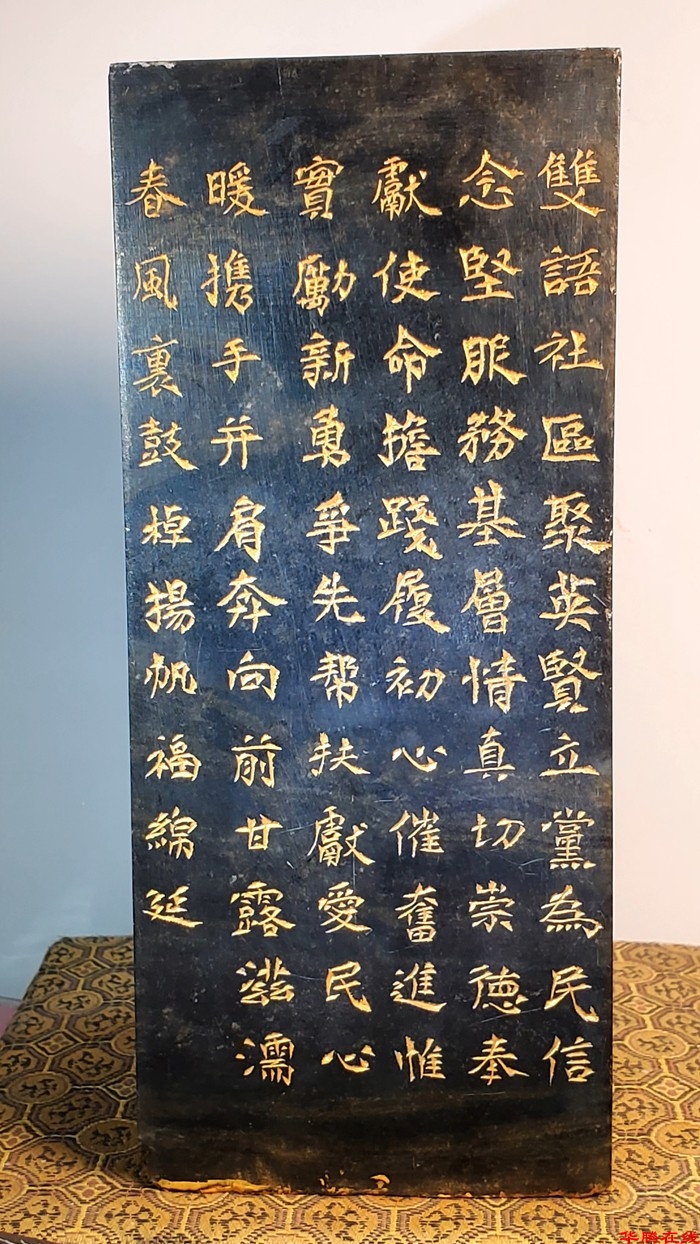 雙語社區聚英賢立黨為民信
念堅服務基層情真切崇德奉
獻使命擔踐履初心催奮進惟
實勵新勇爭先帮扶獻愛民心
暖携手并肩奔向前甘露滋濡
春風裏鼓棹揚帆福綿延
华腾在线